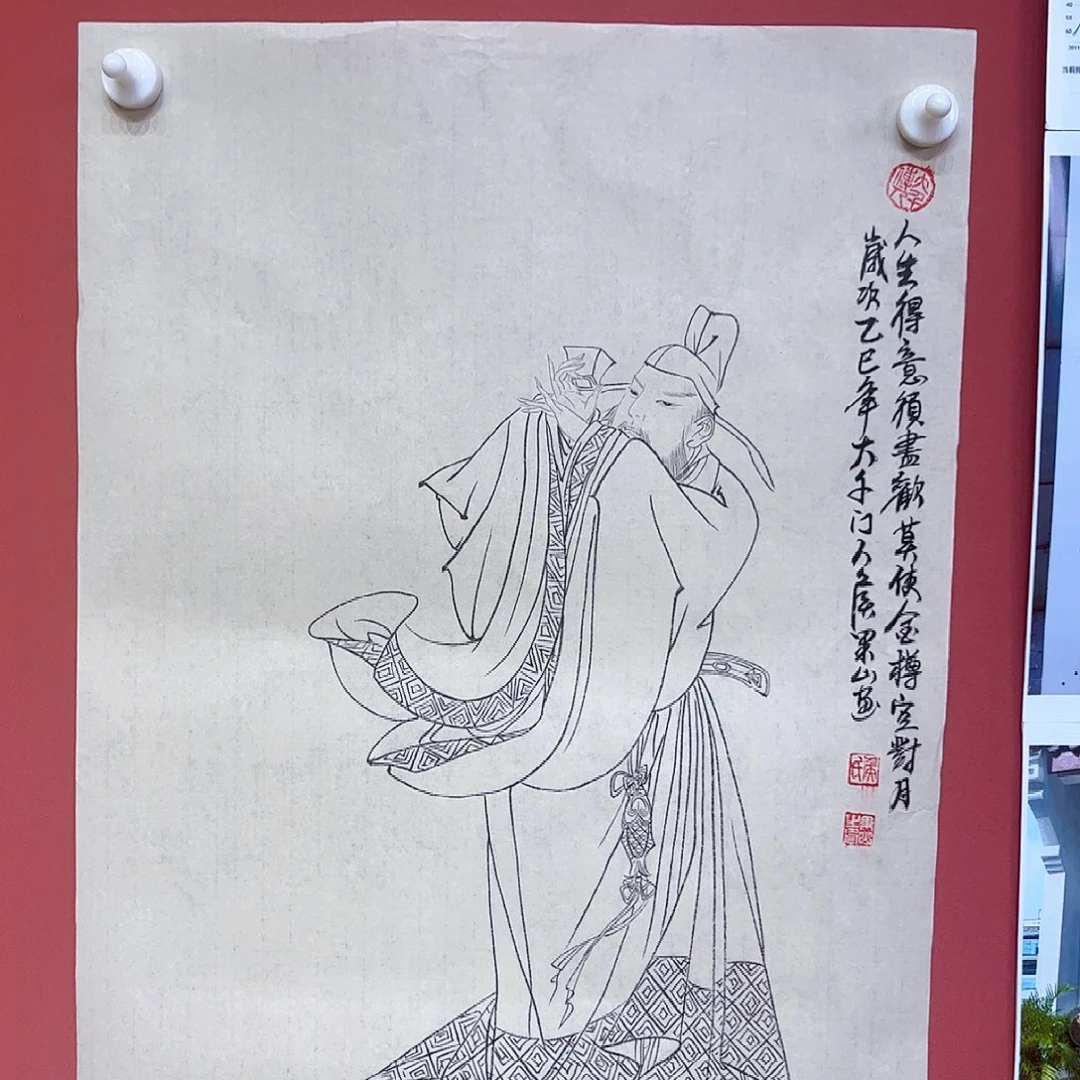 人生得意須盡歡莫使金樽空對月
歲次乙巳年大千门人侯果山画